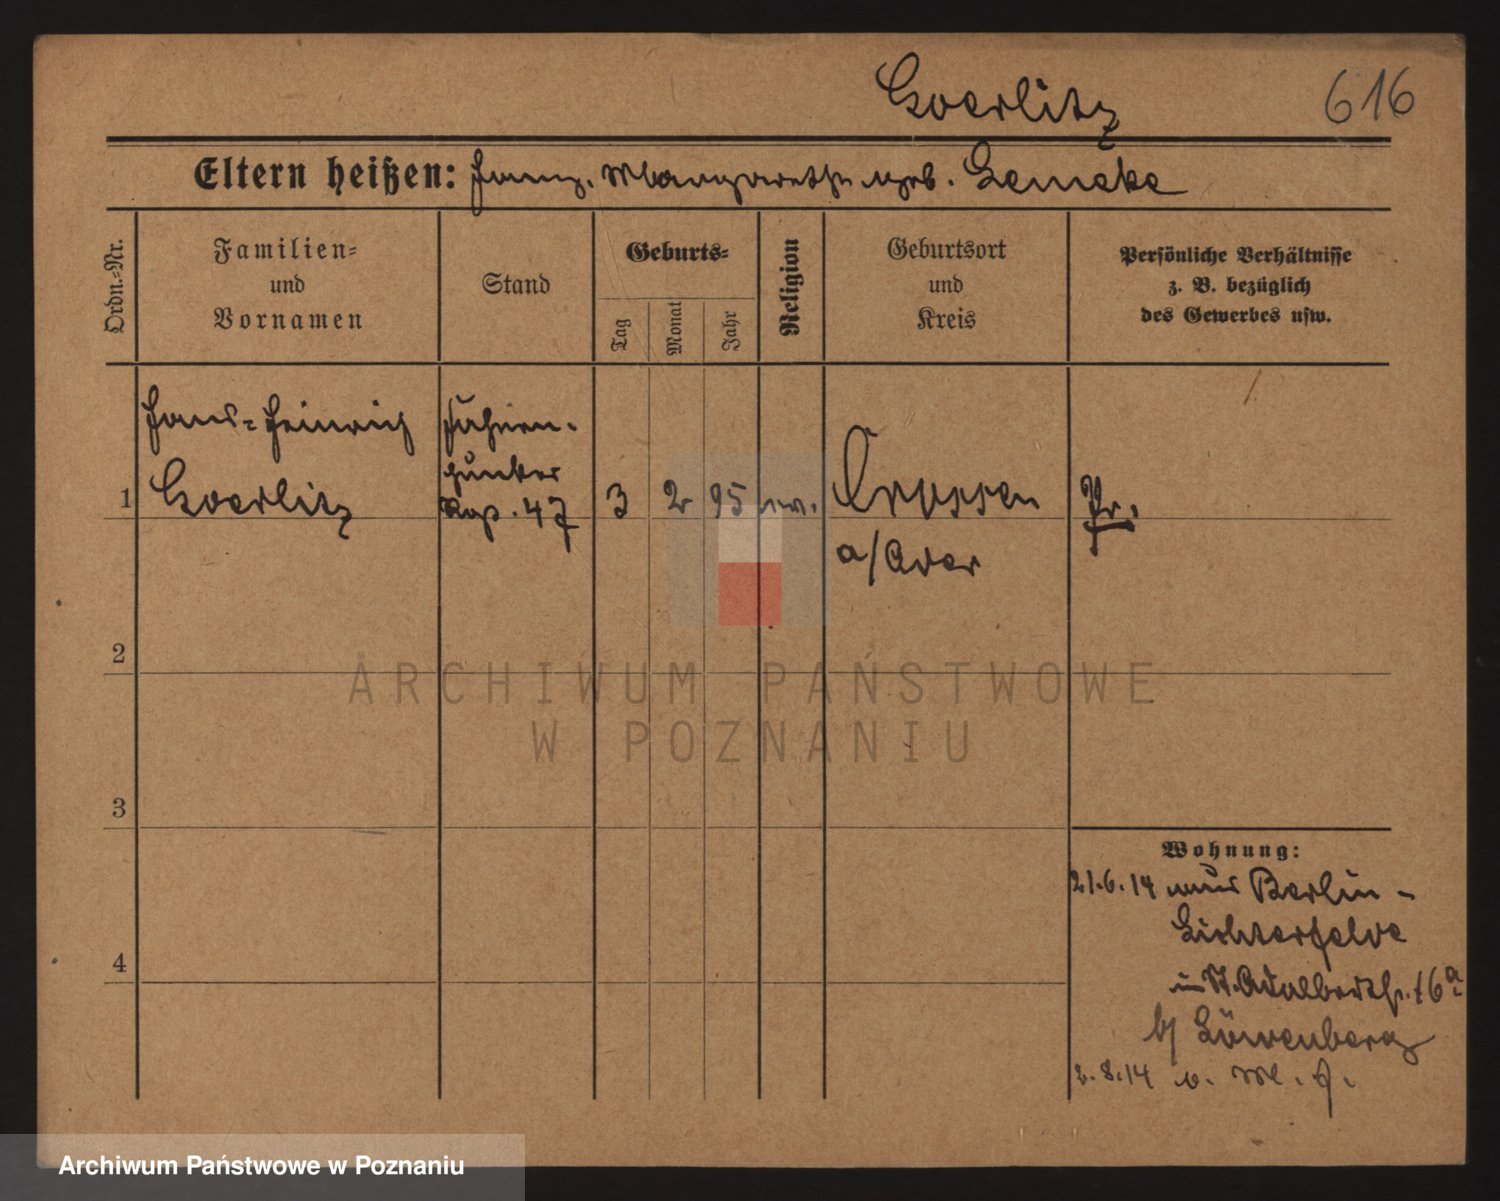 Goerlitz 616
Eltern heißen: Franz. Margarethe geb. Lemcke
Ordn.-Nr.
Familien-
und
Vornamen
Stand
Geburts-
Tag
Monat
Jahr
Religion
Geburtsort
und
Kreis
Persönliche Verhältnisse
z. B. bezüglich
des Gewerbes usw.
Hans-Heinrich
Goerlitz
Fahnen-
junker
Rgt. 47
1
3
2
95
ev.
Crossen
a/Oder
Pr.
2
3
4
Wohnung:
21.6.14 aus Berlin-
Lichterfelde
St. Adalbertstr. 16a
b/ Löwenberg
2.8.14
ARCHIWUM PAŃSTWOWE
W POZNANIU
Archiwum Państwowe w Poznaniu